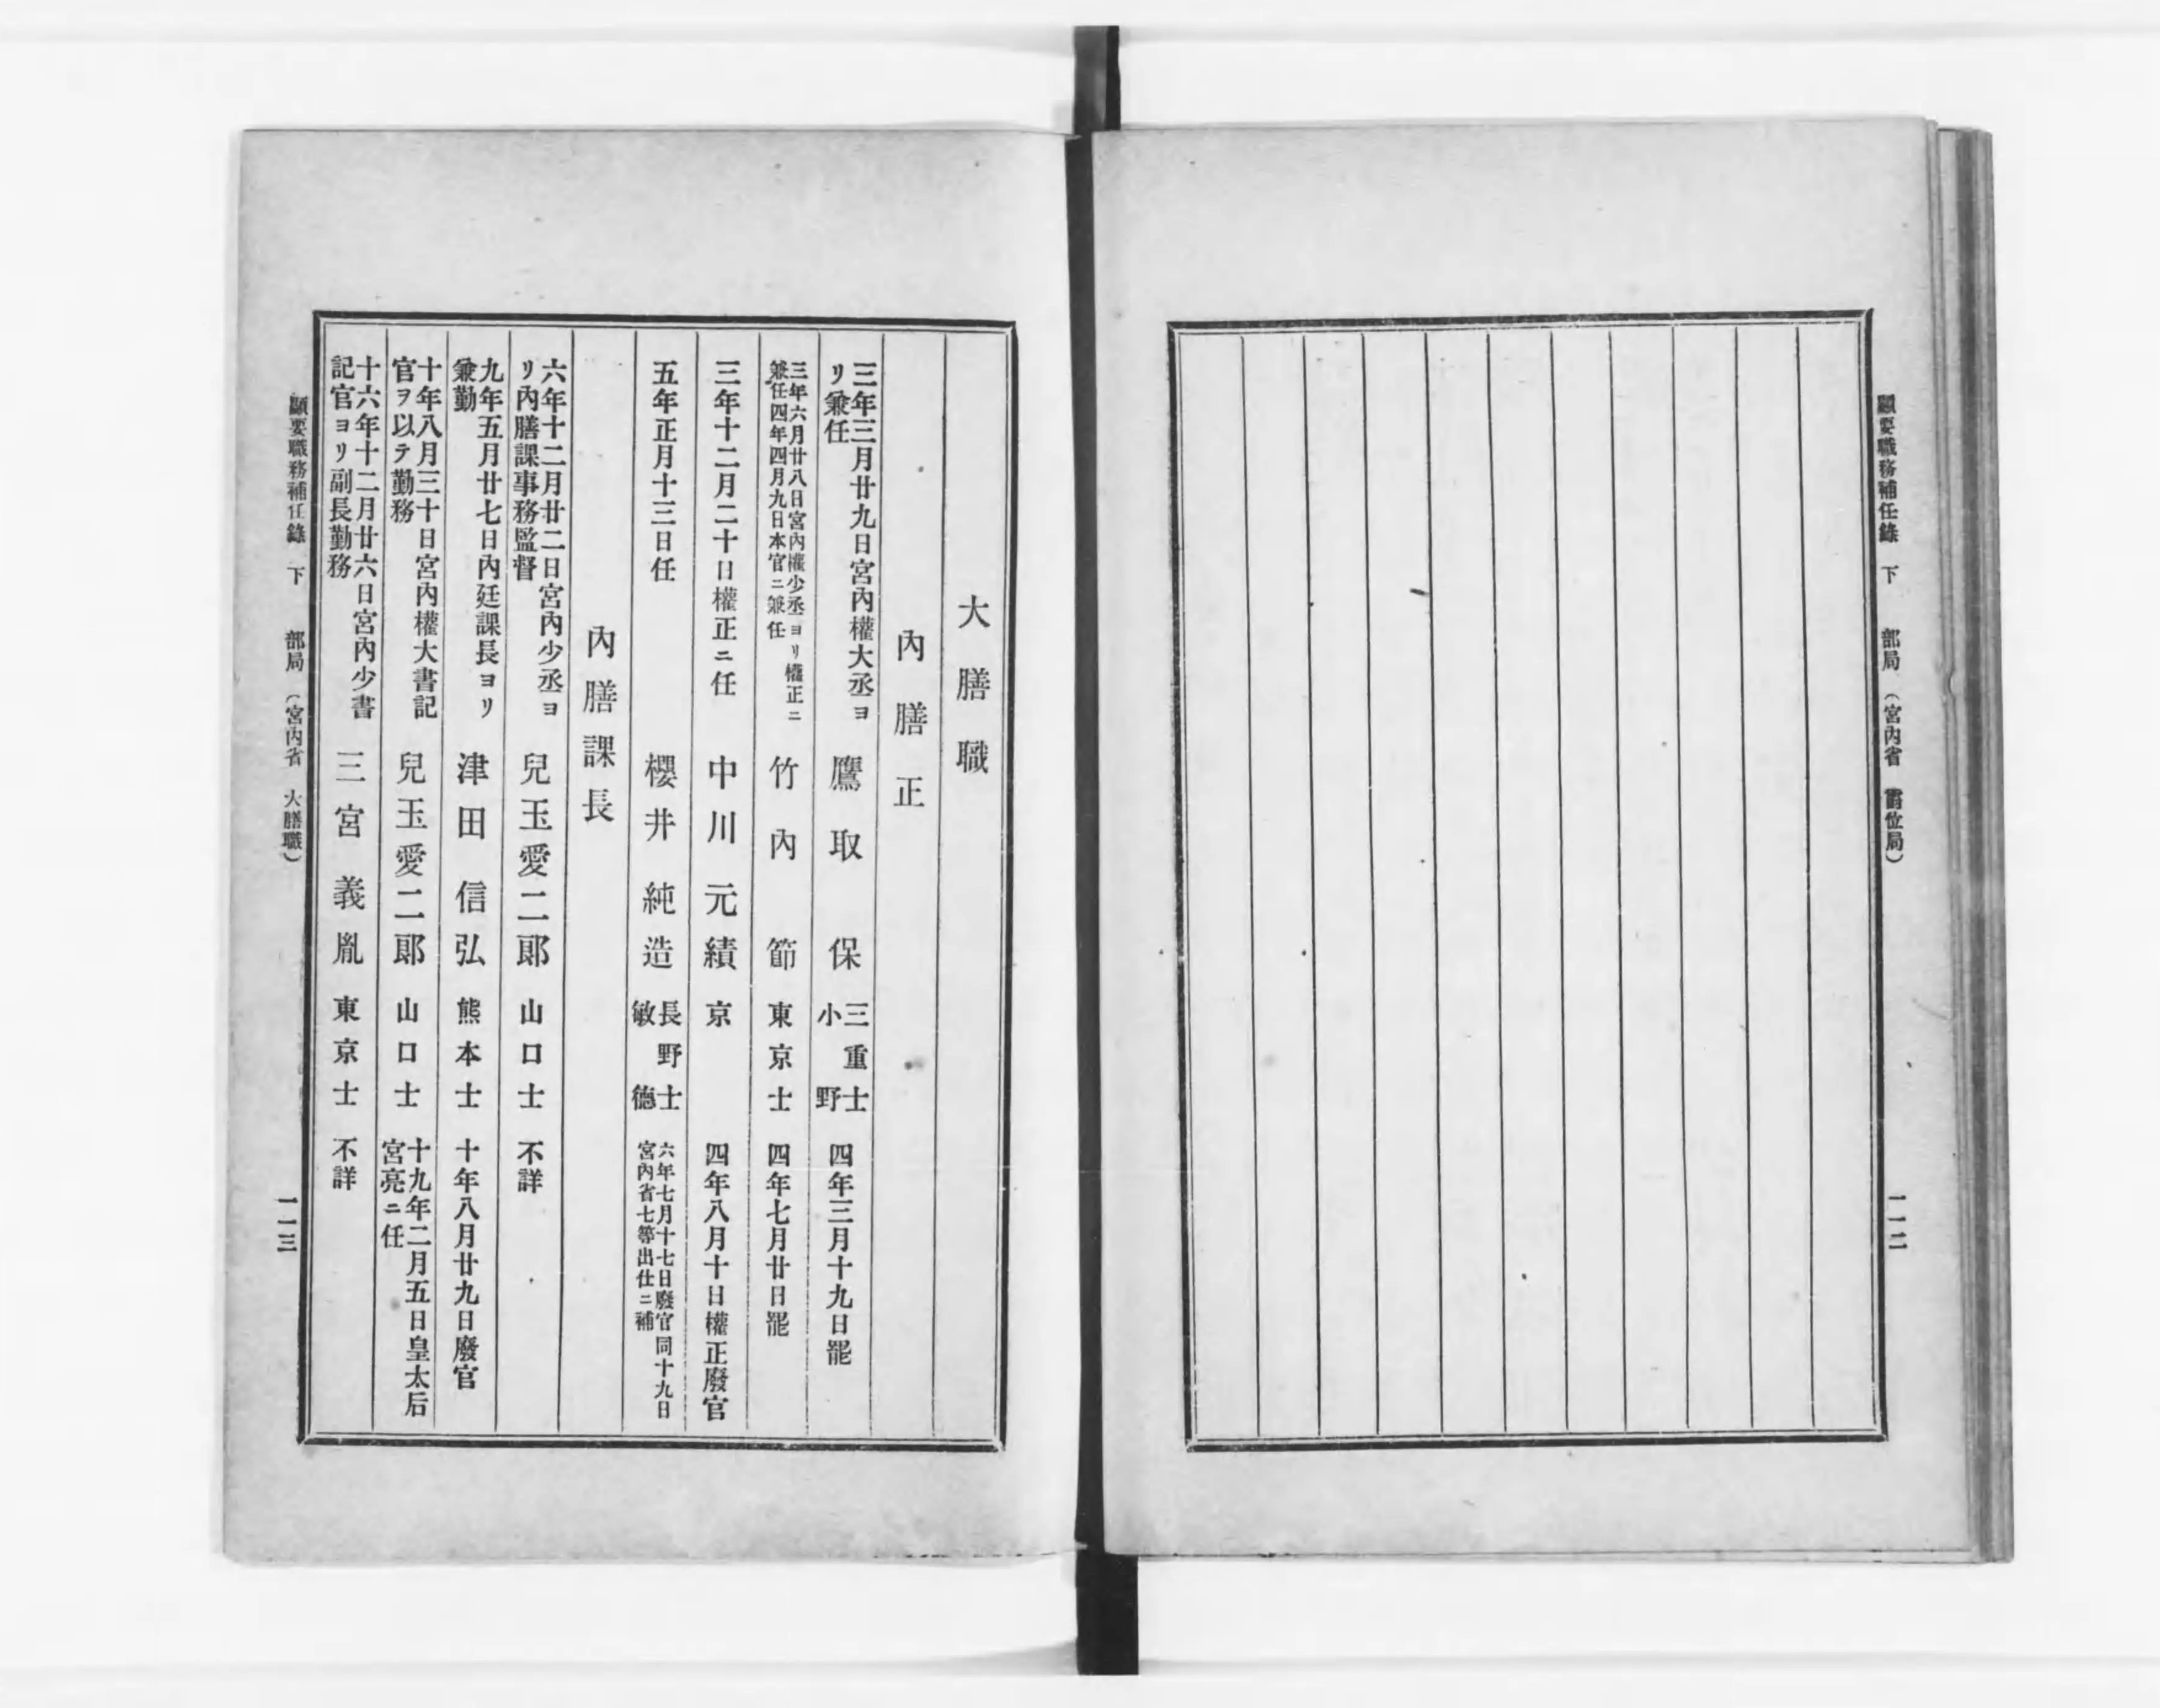 顯要職務補任錄　下　　部局　（宮內省　爵位局）
一一二
大膳職
內膳正
三年三月廿九日宮內權大丞ヨ
リ兼任
鷹取　保
三重士
小　野
四年三月十九日罷
三年六月廿八日宮內權少丞ヨリ權正ニ
兼任四年四月九日本官ニ兼任
竹內　節
東京士
四年七月廿日罷
三年十二月二十日權正ニ任
中川元績
京
四年八月十日權正廢官
五年正月十三日任
櫻井純造
長野士
敏　德
六年七月十七日廢官同十九日
宮內省七等出仕ニ補
內膳課長
六年十二月廿二日宮內少丞ヨ
リ內膳課事務監督
兒玉愛二郞
山口士
不詳
九年五月廿七日內廷課長ヨリ
兼勤
津田信弘
熊本士
十年八月廿九日廢官
十年八月三十日宮內權大書記
官ヲ以テ勤務
兒玉愛二郞
山口士
十九年二月五日皇太后
宮亮ニ任
十六年十二月廿六日宮內少書
記官ヨリ副長勤務
三宮義胤
東京士
不詳
顯要職務補任錄　下　　部局　（宮內省　大膳職）
一一三